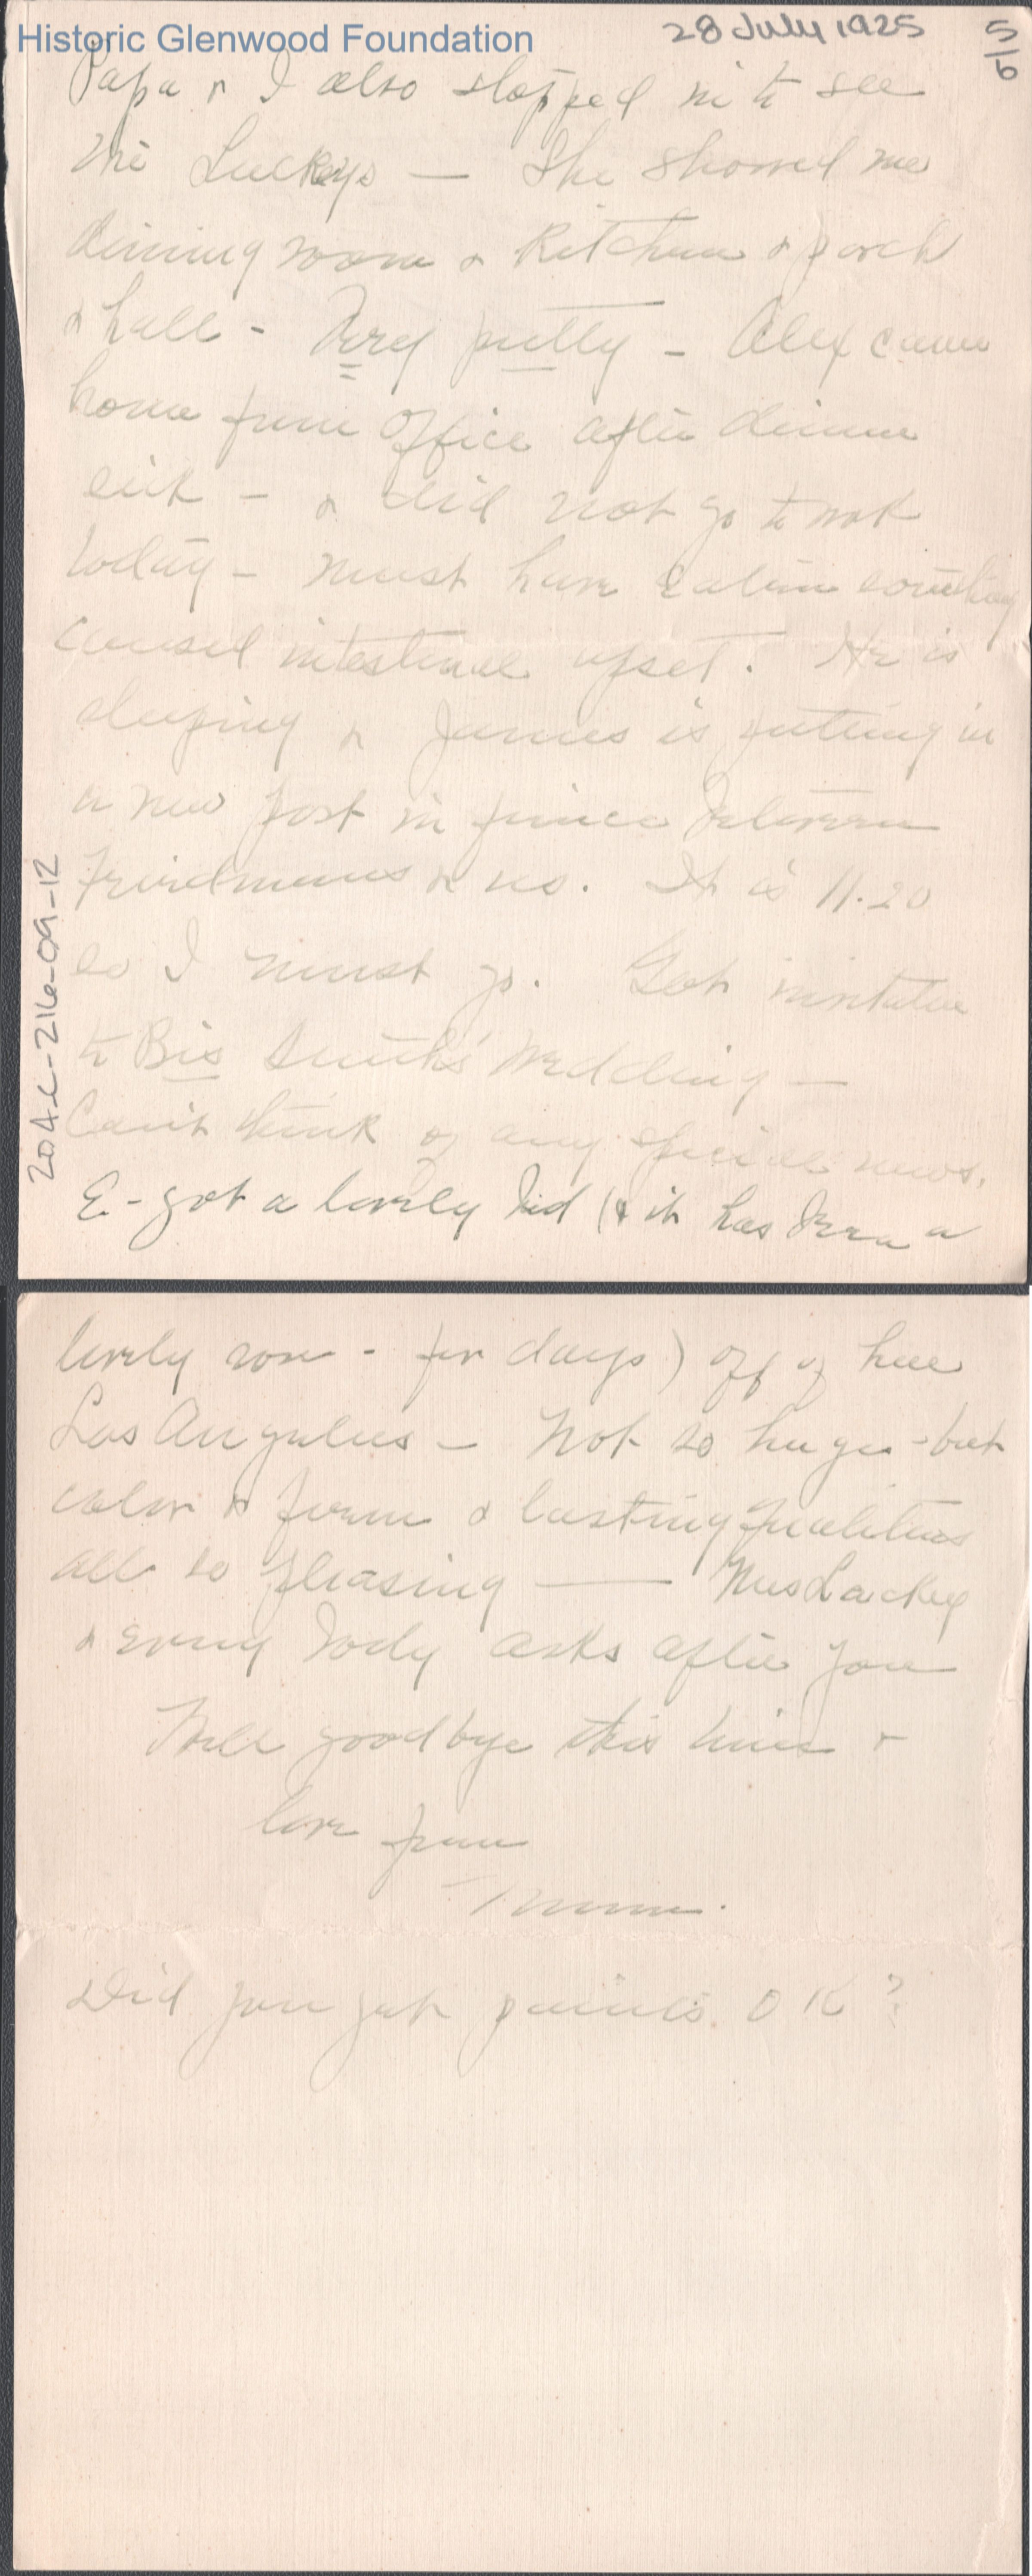 Historic Glenwood Foundation
28 July 1925
5/6
Papa & I also stopped in to see
the Luckeys — She showed me
dining room & Kitchen & porch
& hall - Very pretty - Alex came
home from Office after dinner
sick - & did not go to work
today - must have eaten something
caused intestinal upset. He is
sleeping & James is putting in
a new post in fence between
Friedmans & us. It is 11.20
so I must go. Got invitation
to Bis Smith's Wedding —
Can't think of any special news.
E - got a lovely bud (& it has been a
204-L-216-09-12
lovely rose - for days) off of her
Los Angeles - Not so huge - but
color & form & lasting qualities
all so pleasing —
& every body asks after you
Well goodbye this time &
love from
Did you get OK?